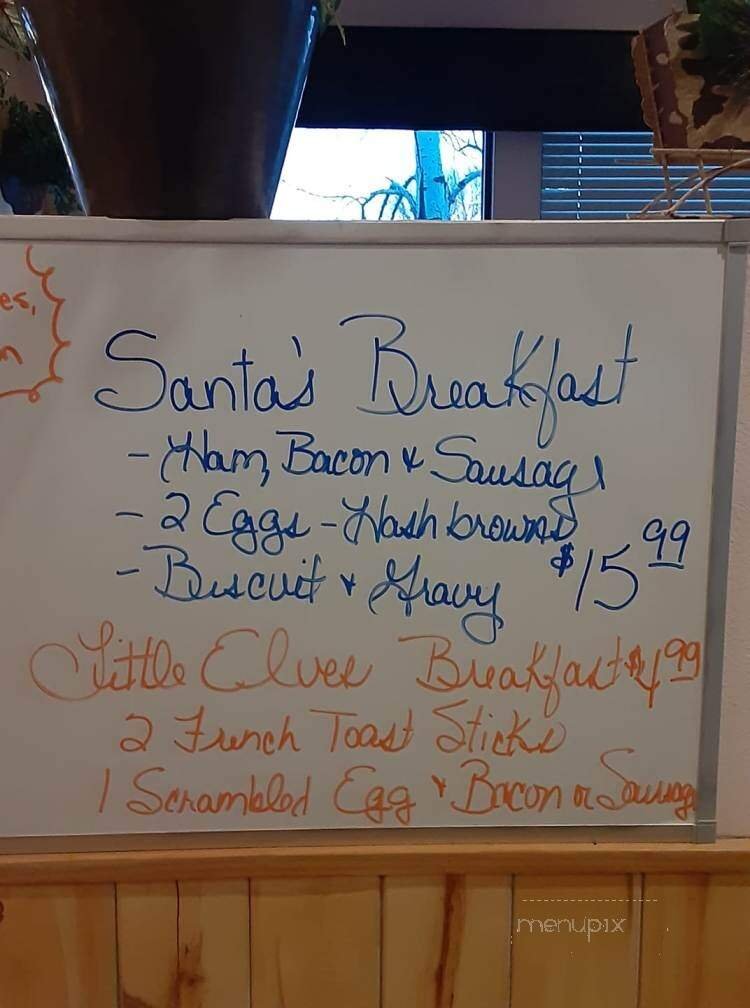 Santa's Breakfast
- Ham, Bacon & Sausage
- 2 Eggs - Hash browns
- Biscuit & Gravy $15 99
Little Elves Breakfast $4 99
2 French Toast Sticks
1 Scrambled Egg & Bacon or Sausage
menupix